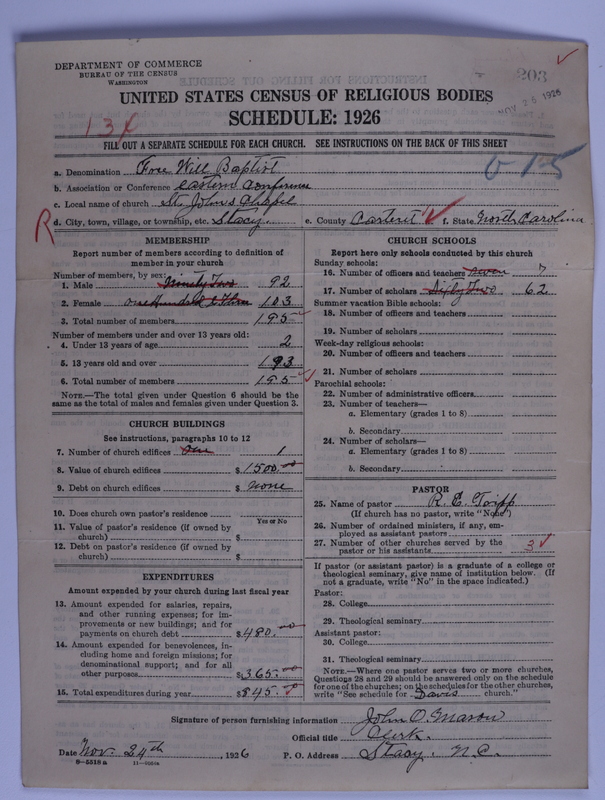 203
NOV 26 1926
DEPARTMENT OF COMMERCE
BUREAU OF THE CENSUS
WASHINGTON
UNITED STATES CENSUS OF RELIGIOUS BODIES
SCHEDULE: 1926
FILL OUT A SEPARATE SCHEDULE FOR EACH CHURCH. SEE INSTRUCTIONS ON THE BACK OF THIS SHEET
a. Denomination Free Will Baptist
b. Association or Conference Eastern Conference
c. Local name of church St. Johns Chapel
R d. City, town, village, or township, etc. Stacy. e. County Carteret f. State North Carolina
MEMBERSHIP
Report number of members according to definition of member in your church
Number of members, by sex:
1. Male Ninety Two 92
2. Female one Hundred & Three 103
3. Total number of members 195
Number of members under and over 13 years old:
4. Under 13 years of age 2
5. 13 years old and over 193
6. Total number of members 195
NOTE.—The total given under Question 6 should be the same as the total of males and females given under Question 3.
CHURCH BUILDINGS
See instructions, paragraphs 10 to 12
7. Number of church edifices One 1
8. Value of church edifices $ 1500.00
9. Debt on church edifices $ none
10. Does church own pastor's residence
Yes or No
11. Value of pastor's residence (if owned by church) $
12. Debt on pastor's residence (if owned by church) $
EXPENDITURES
Amount expended by your church during last fiscal year
13. Amount expended for salaries, repairs, and other running expenses; for improvements or new buildings; and for payments on church debt $ 480.00
14. Amount expended for benevolences, including home and foreign missions; for denominational support; and for all other purposes $ 365.00
15. Total expenditures during year $ 845.
CHURCH SCHOOLS
Report here only schools conducted by this church
Sunday schools:
16. Number of officers and teachers Seven 7
17. Number of scholars Sixty Two 62
Summer vacation Bible schools:
18. Number of officers and teachers
19. Number of scholars
Week-day religious schools:
20. Number of officers and teachers
21. Number of scholars
Parochial schools:
22. Number of administrative officers
23. Number of teachers—
a. Elementary (grades 1 to 8)
b. Secondary
24. Number of scholars—
a. Elementary (grades 1 to 8)
b. Secondary
PASTOR
25. Name of pastor R. E.
(If church has no pastor, write "None")
26. Number of ordained ministers, if any, employed as assistant pastors
27. Number of other churches served by the pastor or his assistants 3
If pastor (or assistant pastor) is a graduate of a college or theological seminary, give name of institution below. (If not a graduate, write "No" in the space indicated.)
Pastor:
28. College
29. Theological seminary
Assistant pastor:
30. College
31. Theological seminary
NOTE.—Where one pastor serves two or more churches, Questions 28 and 29 should be answered only on the schedule for one of the churches; on the schedules for the other churches, write "See schedule for Davis church."
Signature of person furnishing information John O. Mason
Official title Clerk.
Date Nov. 24th, 1926 P. O. Address Stacy. N.C.